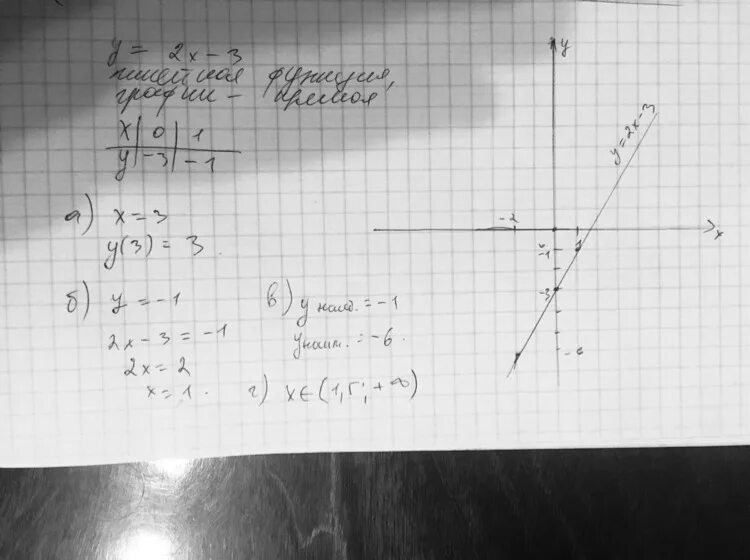 y = 2x - 3
линейная функция,
график - прямая
x | 0 | 1
y | -3 | -1
а) x = 3
y(3) = 3.
б) y = -1
2x - 3 = -1
2x = 2
x = 1.
в) y наиб. = -1
y наим. = -6.
г) x ∈ (1,5; +∞)
y
y = 2x - 3
-2
x
1
-1
-3
-6